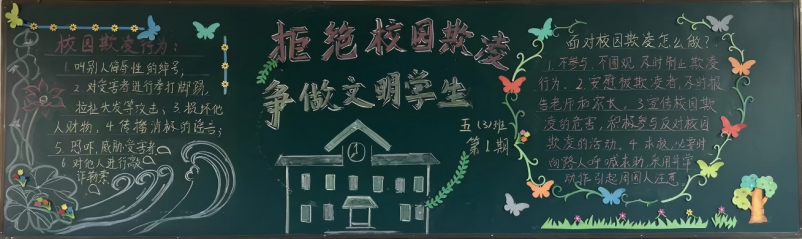 校园欺凌行为：
1.叫别人侮辱性的绰号，
2.对受害者进行拳打脚踢，
拉扯头发等攻击、3.损坏他
人财物，4.传播消极的谣言，
5.恐吓、威胁受害者
6.对他人进行敲
诈勒索。
拒绝校园欺凌
争做文明学生
五(3)班
第1期
面对校园欺凌怎么做？
1.不参与、不围观，及时制止欺凌
行为、2.安慰被欺凌者，及时报
告老师和家长、3.宣传校园欺
凌的危害，积极参与反对校园
欺凌的活动。4.求救，必要时
向路人呼喊求助，采用异常
动作引起周围人注意。